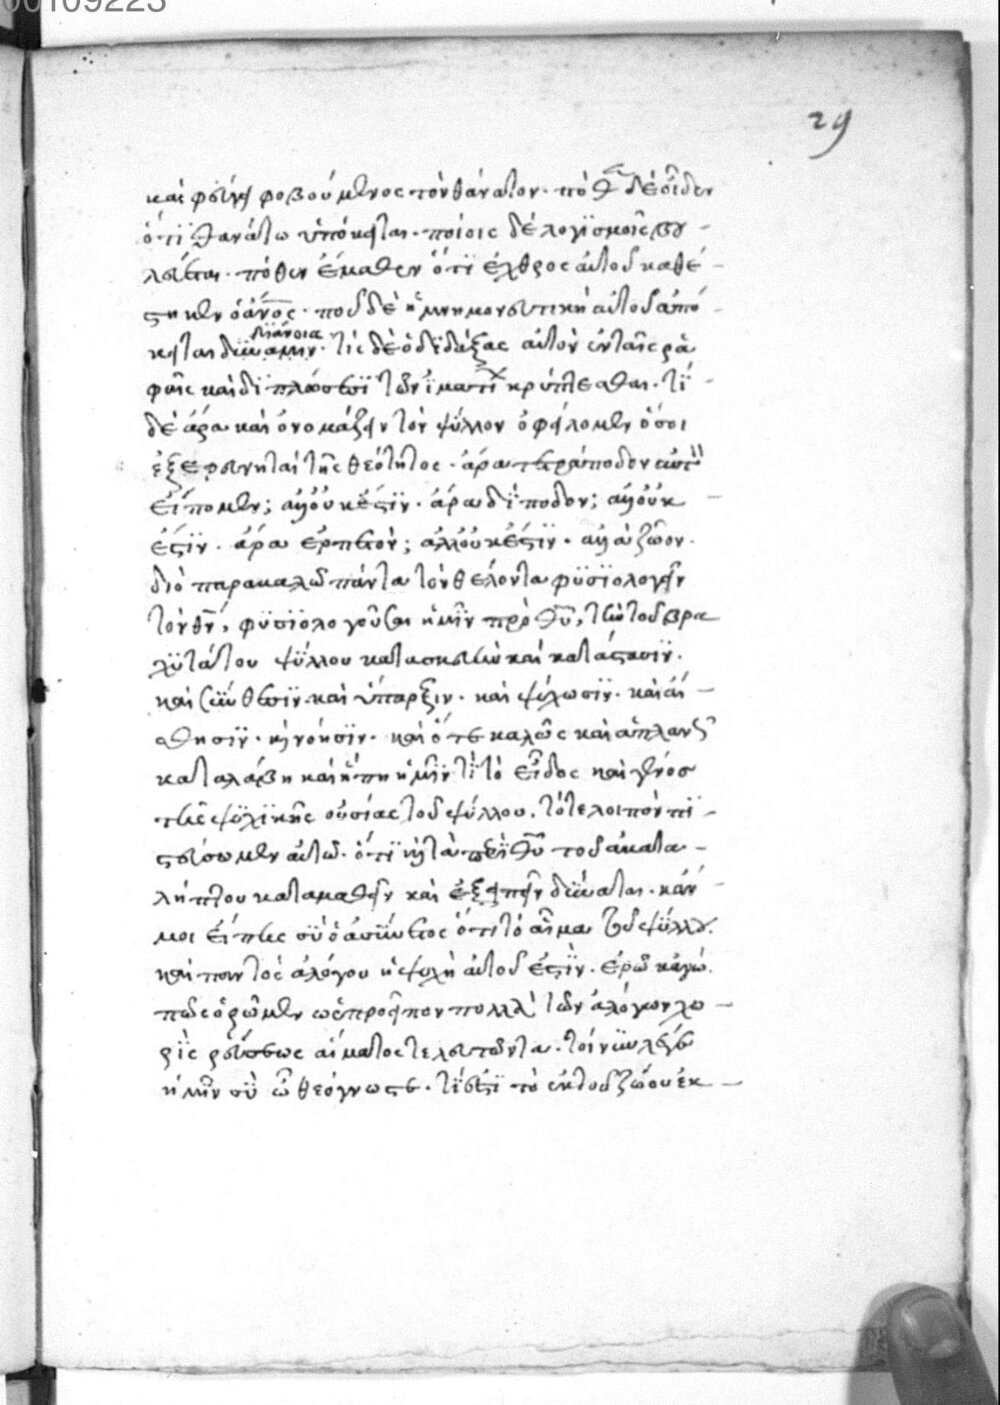 00109223
29
καὶ φεύγει φοβούμενος τὸν θάνατον. πόθεν δὲ οἶδεν
ὅτι θανάτω ὑπόκειται. ποίοις δὲ λογϊσμοῖς βου
λεύεται. πόθεν ἔμαθεν ὅτϊ ἐχθρος αὐτοῦ καθέ
στηκεν ὁ ἄνος. ποῦ δὲ ἡ μνημονευτικὴ αὐτοῦ ἀπό
διάνοια
κειται δύναμιν. τίς δὲ ὁ δϊδάξας αὐτὸν ἐν ταῖς ρα
φαῖς καὶ δϊπλώσεσϊ τῶν ἱματί κρύπτεσθαι. τί
δὲ ἄρα καὶ ὀνομάζειν τὸν ψύλλον ὀφείλομεν ὅσοι
ἐξερευνηταὶ τῆς θεότητος. ἄρα τετράποδον αὐτὸν
εἴπομεν; ἀλλ' οὐκ ἔστϊν. ἄρα δίποδον; ἀλλ' οὐκ
ἔστϊν. ἄρα ἑρπετὸν; ἀλλ' οὐκ ἔστϊν. ἀλλὰ ζῶον.
διὸ παρακαλῶ πάντα τὸν θέλοντα φϋσϊολογεῖν
τὸν θν, φϋσϊολογοῦσαι ἡμῖν πρὸ θυ, τὴν τοῦ βρα
χϋτάτου ψύλλου κατασκευὴν καὶ κατάστασϊν.
καὶ σύνθεσϊν καὶ ὕπαρξιν. καὶ ψύχωσϊν. καὶ αἴ
σθησϊν. κίνησϊν. καὶ ὅτε καλῶς καὶ ἀπλανῶς
καταλάβη καὶ εἴπη ἡμῖν τί τὸ εἶδος καὶ γένος
τῆς ψϋχϊκῆς οὐσίας τοῦ ψύλλου. τότε λοιπὸν πϊ
στεύσωμεν αὐτῶ. ὅτϊ καὶ τὰ περὶ θυ τοῦ ἀκατα
λήπτου καταμαθεῖν καὶ ἐξειπεῖν δύναται. κἄν
μοι εἴπης σὺ ὁ ἀσύνετος ὅτι τὸ αἷμα τοῦ ψύλλου.
καὶ παντὸς ἀλόγου ἡ ψυχὴ αὐτοῦ ἐστϊν. ἐρῶ κἀγώ.
πῶς ὁρῶμεν ὡς προεῖπον πολλὰ τῶν ἀλόγων χω
ρὶς ρεύσεως αἵματος τελευτῶντα. τοίνυν λέγε
ἡμῖν σὺ ὦ θεόγνωστε. τί ἐστϊ τὸ ἐκ τοῦ ζώου ἐκ